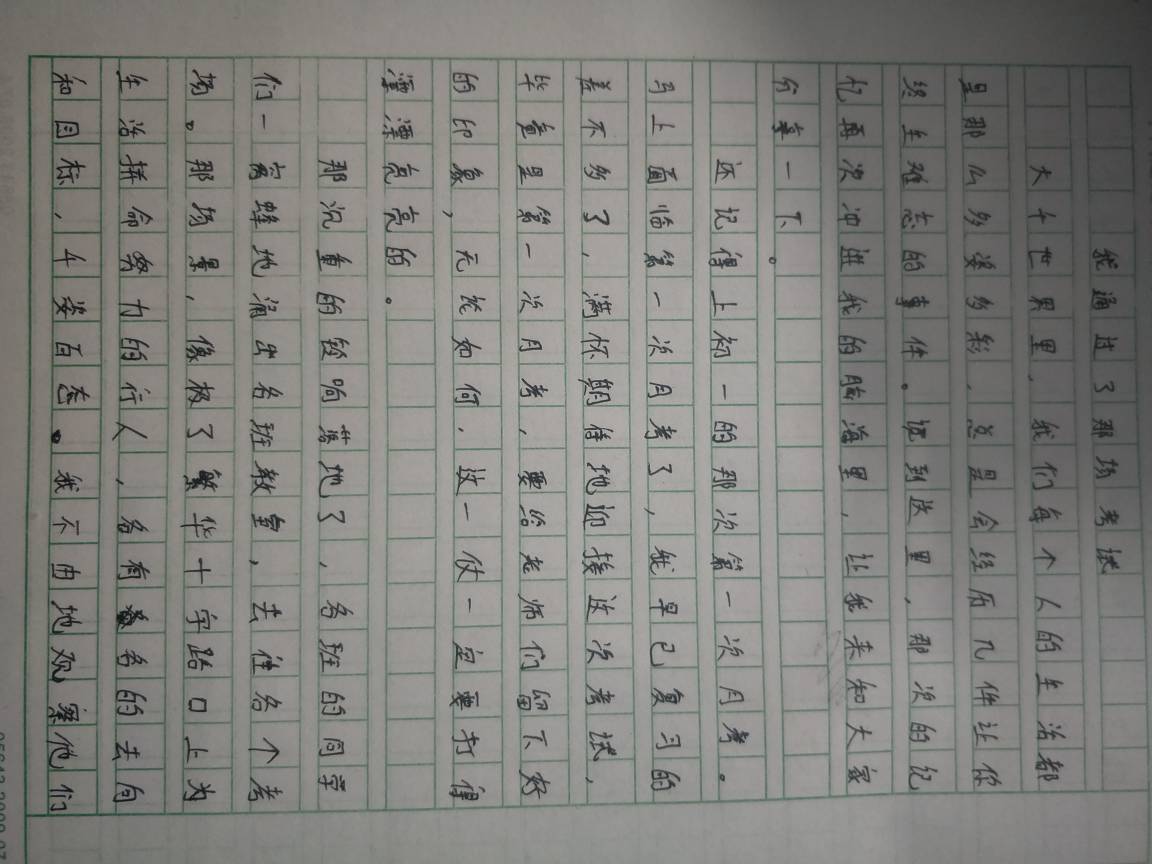 我通过了那场考试
大千世界里，我们每个人的生活都
是那么多姿多彩，总是会经历几件让你
终生难忘的事件。说到这里，那次的记
忆再次冲进我的脑海里，让我来和大家
分享一下。
还记得上初一的那次第一次月考。
马上面临第一次月考了，我早已复习的
差不多了，满怀期待地迎接这次考试，
毕竟是第一次月考，要给老师们留下好
的印象，无论如何，这一仗一定要打得
漂漂亮亮的。
那沉重的铃响落地了，各班的同学
们一窝蜂地涌出各班教室，去往各个考
场。那场景，像极了繁华十字路口上为
生活拼命努力的行人，各有各的去向
和目标，千姿百态。我不由地观察他们